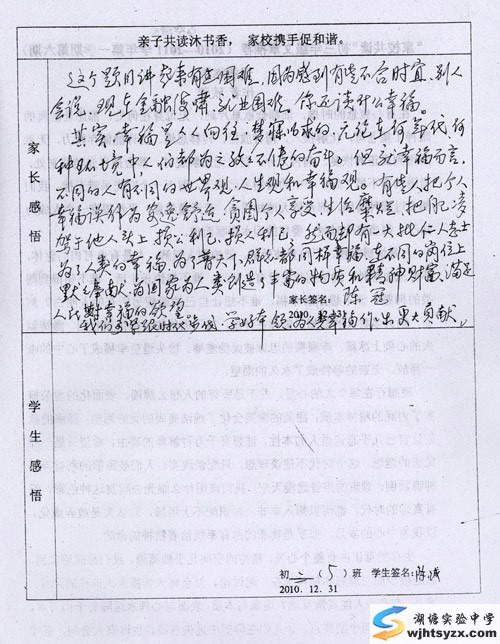 亲子共读沐书香，　家校携手促和谐。
家长感悟
这个题目讲起来有些困难，因为感到有些不合时宜，别人
会说，现在金融海啸，就业困难，你还谈什么幸福。
其实，幸福是人人向往，梦寐以求的，无论在何年代，何
种环境中，人们都为之孜孜不倦的奋斗。但就幸福而言，
不同的人有不同的世界观、人生观和幸福观。有些人把个人
幸福误作为安逸舒适，贪图个人享受，生活糜烂，把自己凌
驾于他人头上，损公利己，损人利己，然而却有一大批仁人志士
为了人类的幸福，为了普天下，群众都同样幸福，在不同的岗位上
默默奉献，为国家为人类创造了丰富的物质和精神财富，满足
人民对幸福的欲望。
家长签名：陈
2010．12．31
我们要跟时代，学好本领，为人类幸福作出更大贡献。
学生感悟
初 二 （5）班　学生签名：陈诚
2010．12．31
湖塘实验中学
wjhtsyzx.com